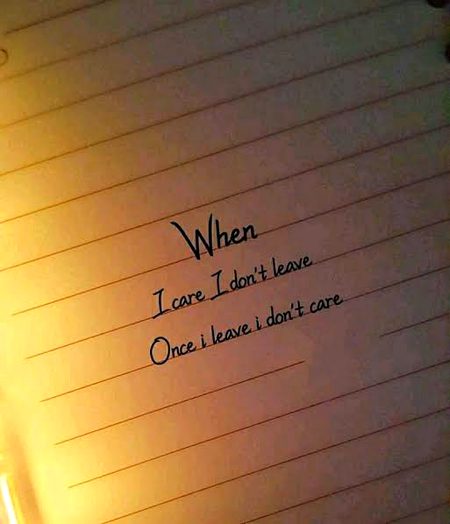 When
I care I don't leave
Once i leave i don't care